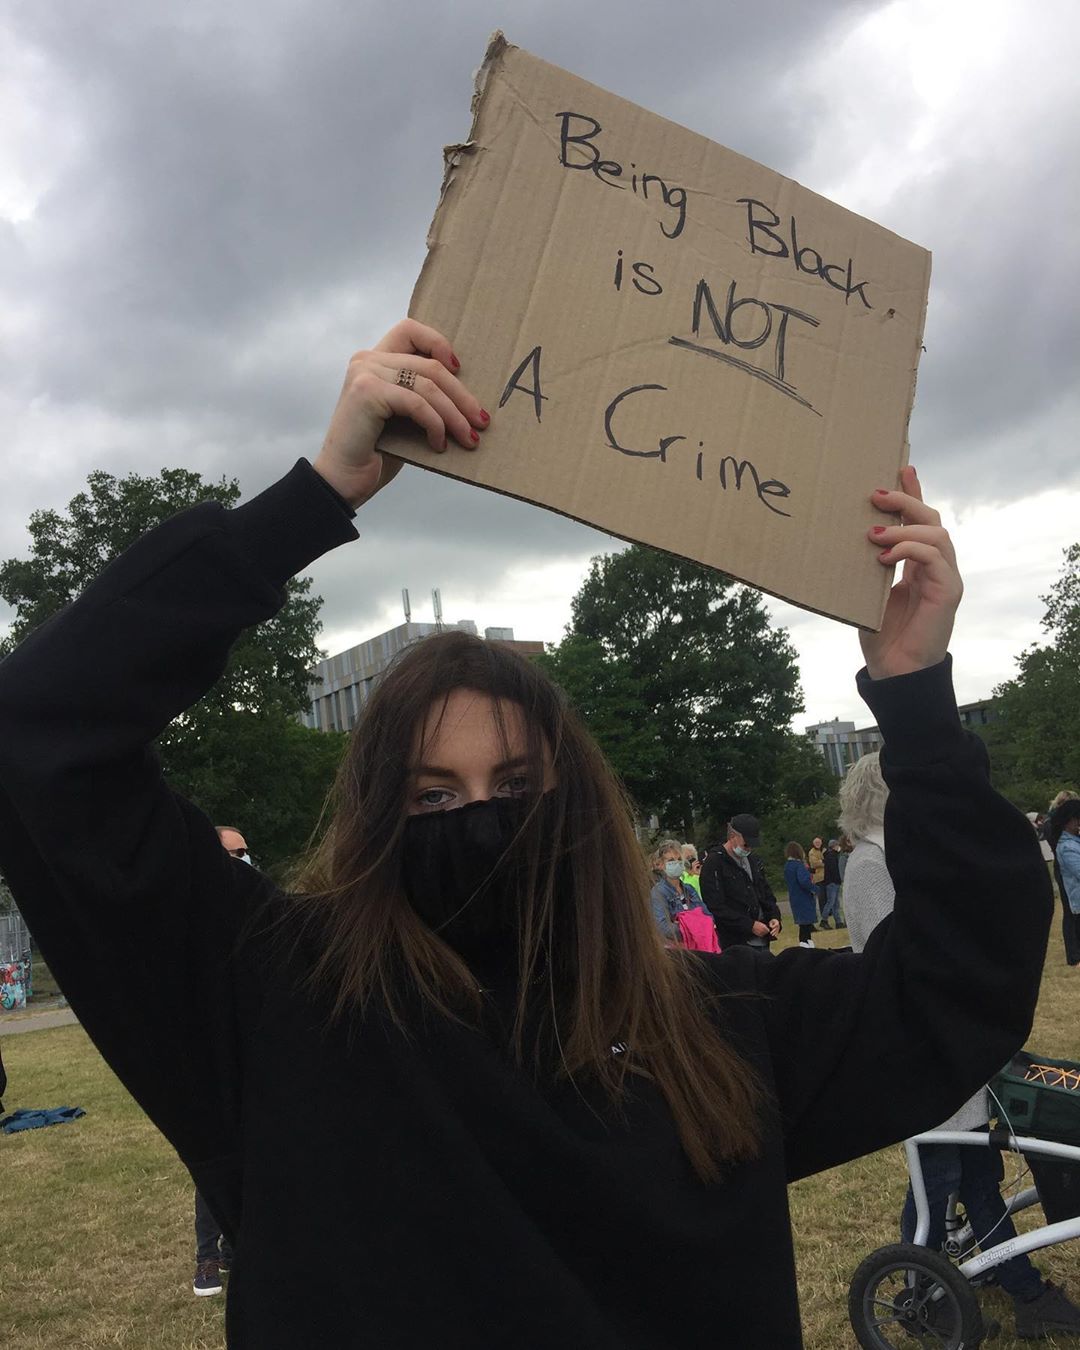 Being Black.
is NOT
A Crime